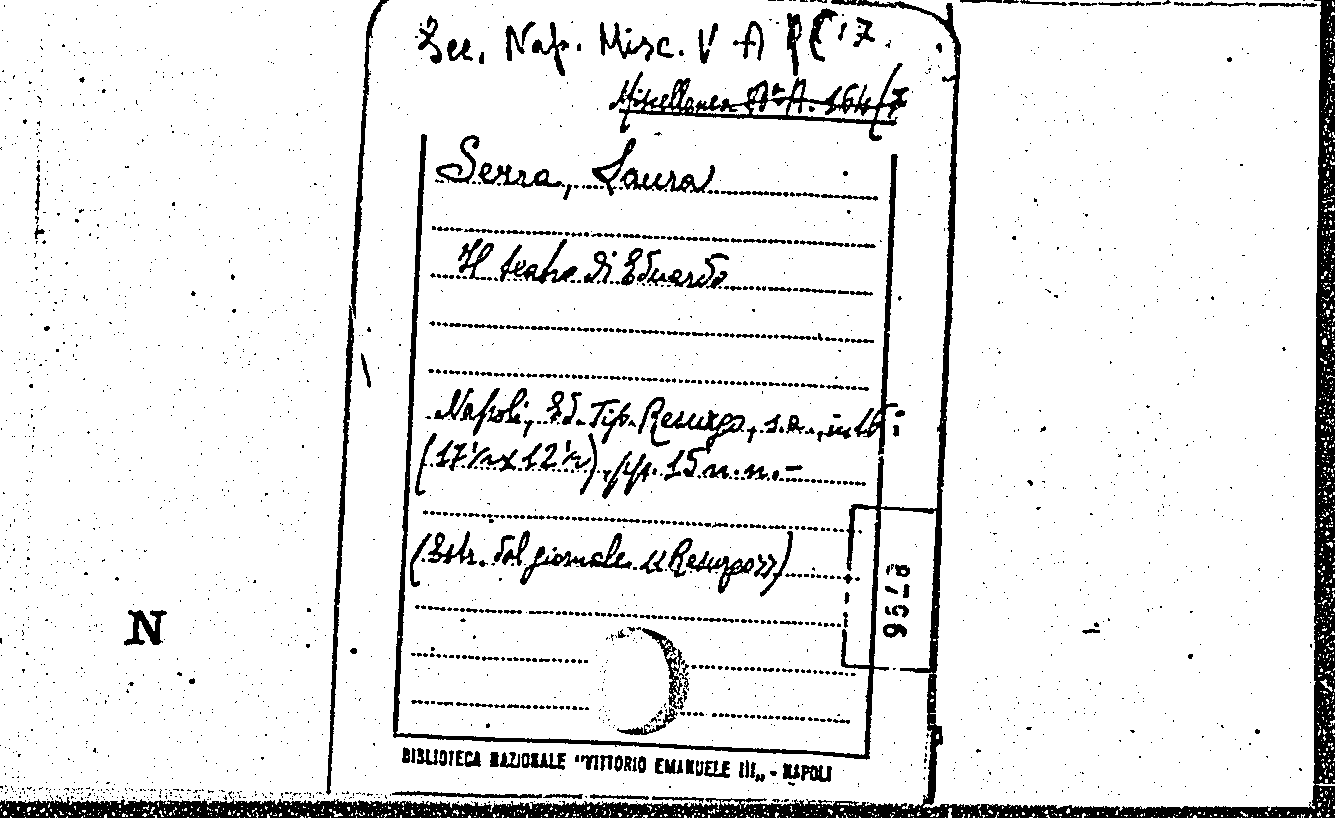 Sez. Nap. Misc. V A
Miscellanea Aª A. 164/7
Serra, Laura
Il teatro di Eduardo
Napoli, Ed. Tip. Resurgo, s.a., in 16º
(17½ x 12½), pp. 15 n.n.-
(Estr. dal giornale «Resurgo»)
N
BIBLIOTECA NAZIONALE "VITTORIO EMANUELE III„ - NAPOLI